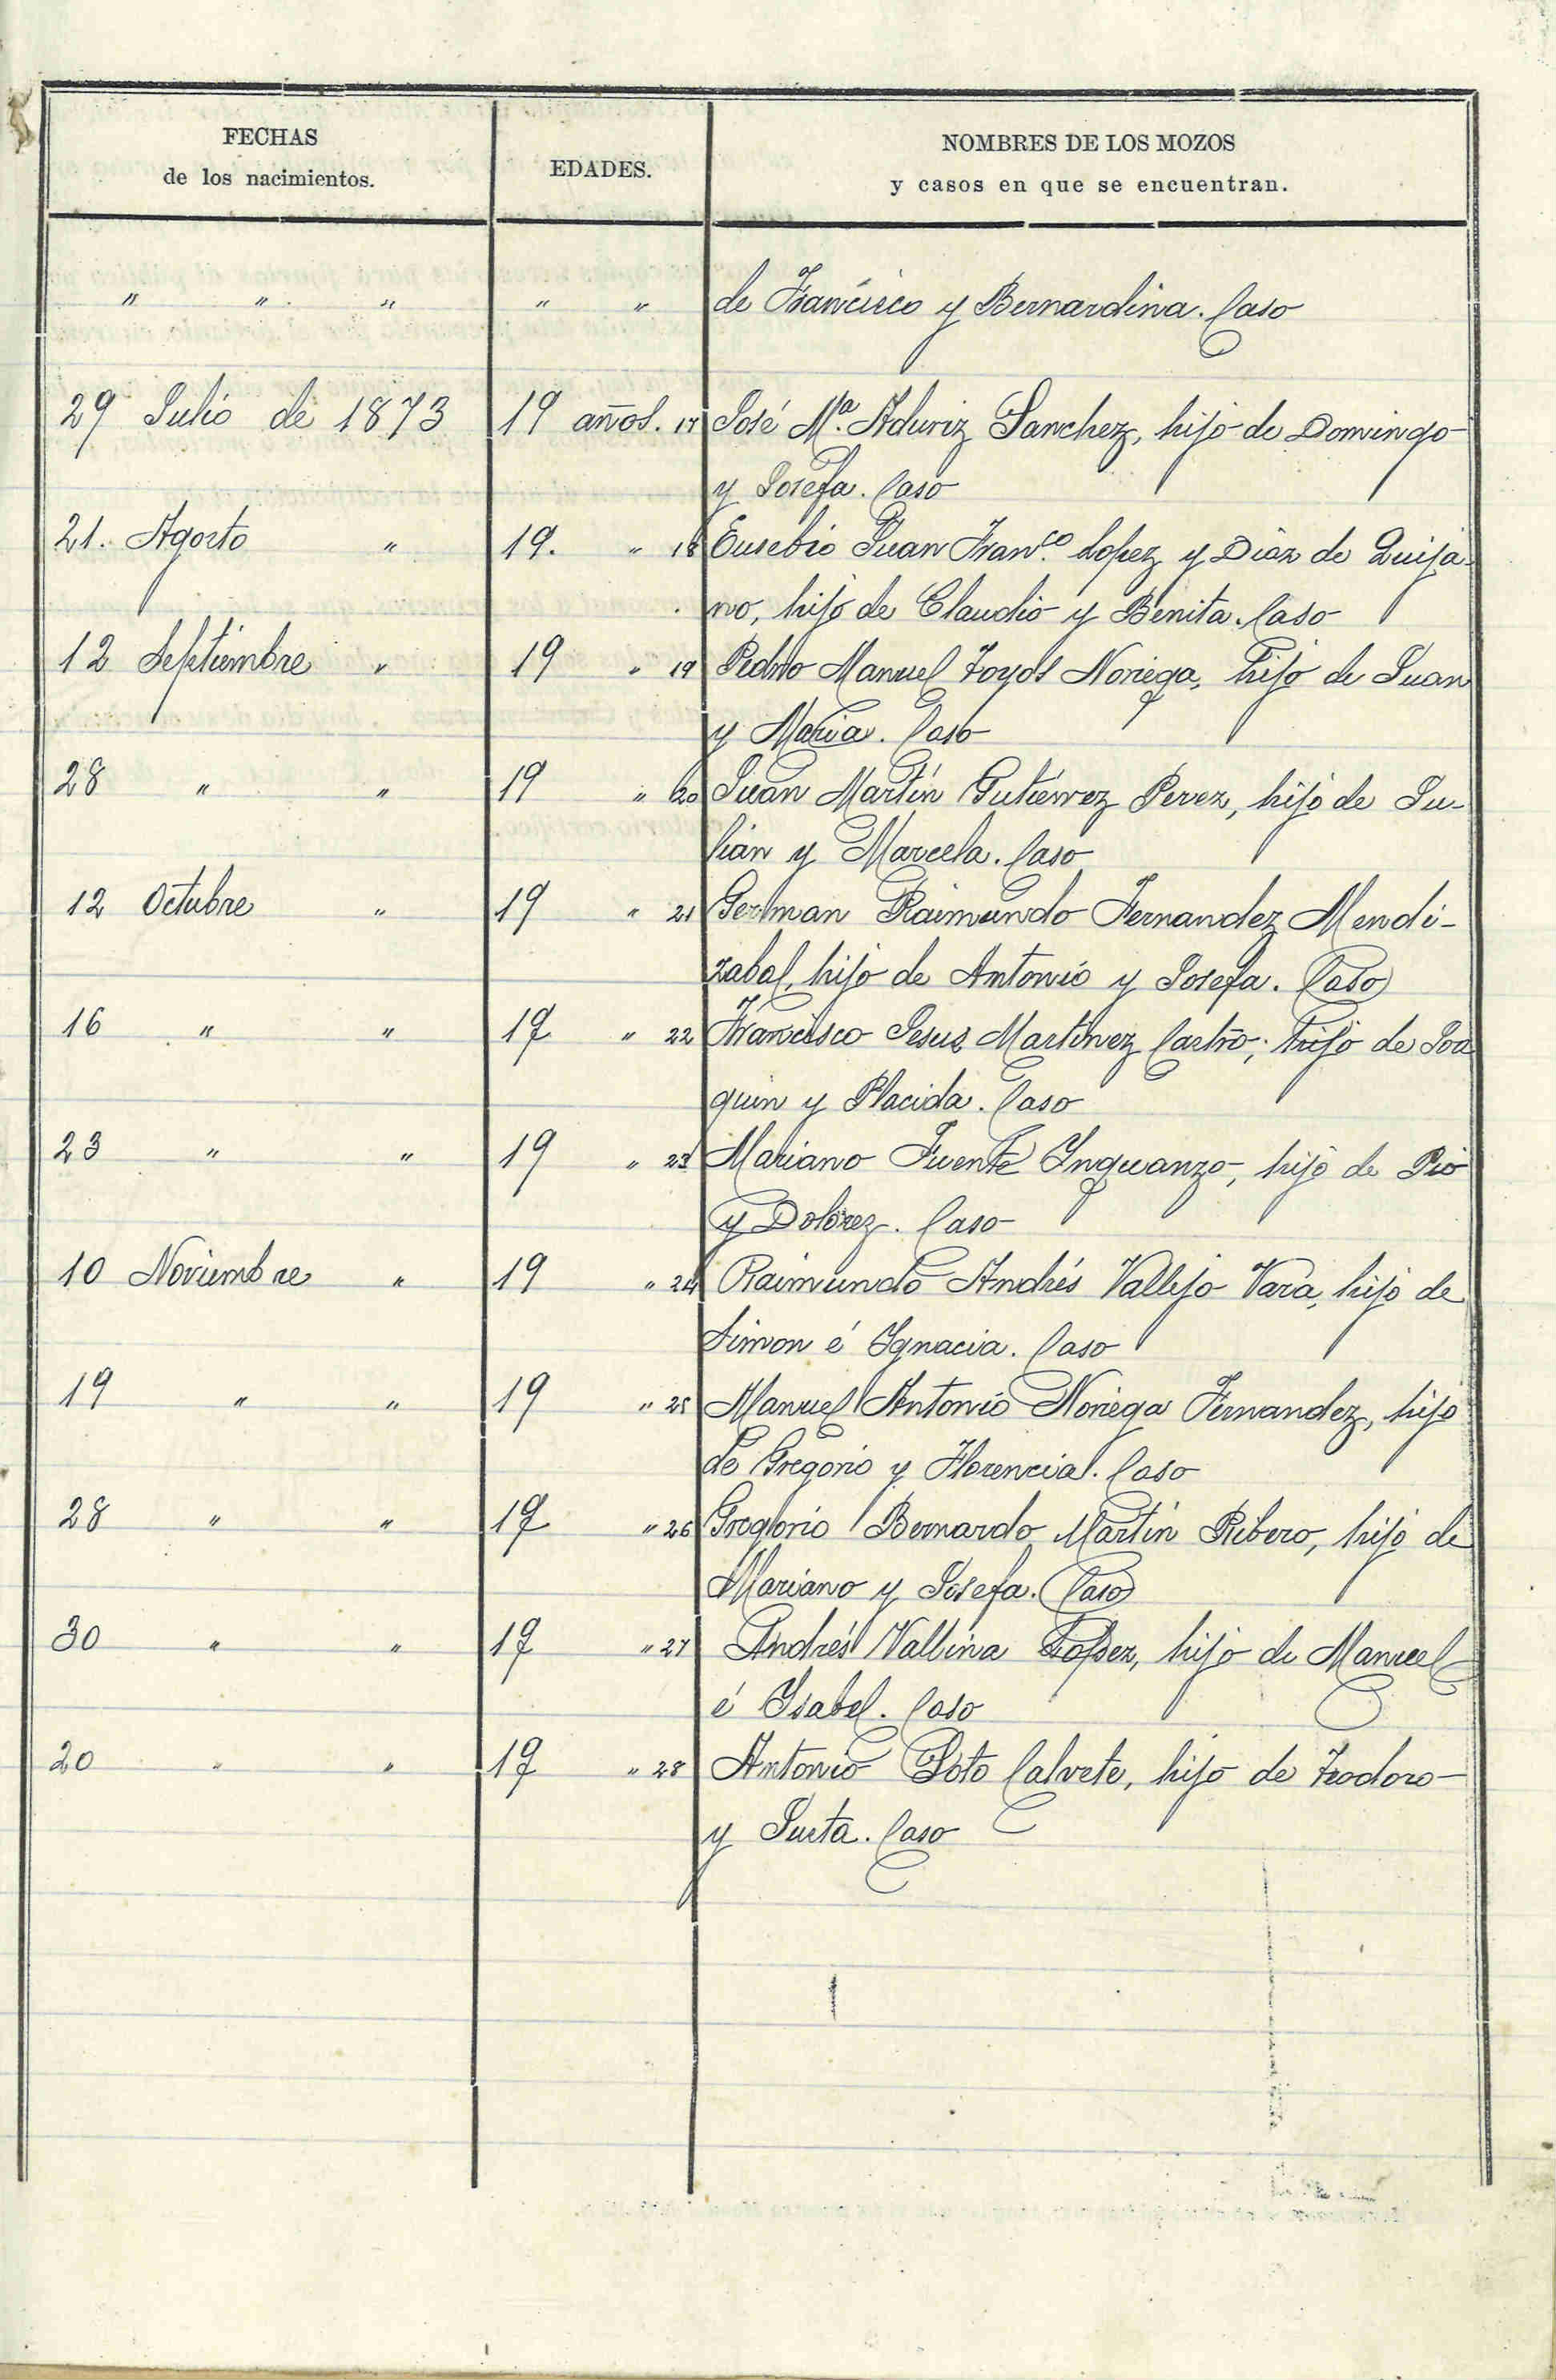 FECHAS
de los nacimientos.
EDADES.
NOMBRES DE LOS MOZOS
y casos en que se encuentran.
" " " " " de Francisco y Bernardina. Caso
29 Julio de 1873 19 años. 17 José Mª. Aduriz Sanchez, hijo de Domingo
y Josefa. Caso
21. Agosto " 19. " 18 Eusebio Juan Franco. Lopez y Diaz de Quija-
no, hijo de Claudio y Benita. Caso
12 Septiembre " 19 " 19 Pedro Manuel Toyos Noriega, hijo de Juan
y Maria. Caso
28 " " 19 " 20 Juan Martín Gutierrez Perez, hijo de Ju-
lian y Marcela. Caso
12 Octubre " 19 " 21 German Raimundo Fernandez Mendi-
zabal, hijo de Antonio y Josefa. Caso
16 " " 19 " 22 Francisco Jesus Martinez Castro, hijo de Joa
quin y Placida. Caso
23 " " 19 " 23 Mariano Fuente Inguanzo, hijo de Pio
y Dolorez. Caso
10 Noviembre " 19 " 24 Raimundo Andrés Vallejo Vara, hijo de
Simon é Ignacia. Caso
19 " " 19 " 25 Manuel Antonio Noriega Fernandez, hijo
de Gregorio y Florencia. Caso
28 " " 19 " 26 Gregorio Bernardo Martín Ribero, hijo de
Mariano y Josefa. Caso
30 " " 19 " 27 Andrés Vallina Lopez, hijo de Manuel
é Isabel. Caso
20 " " 19 " 28 Antonio Soto Calvete, hijo de Teodoro
y Justa. Caso